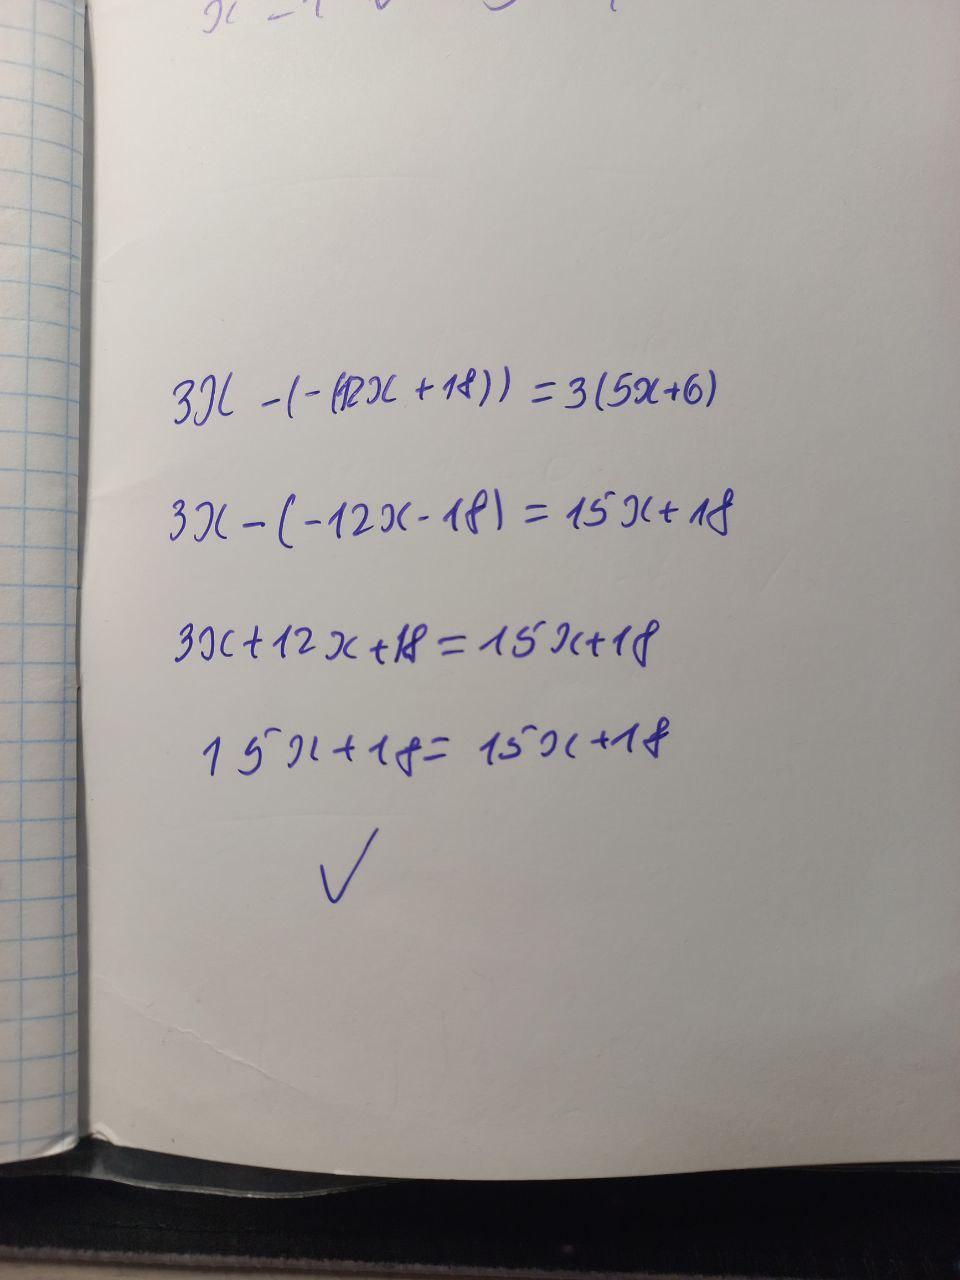 3x - (-(12x + 18)) = 3(5x+6)
3x - (-12x - 18) = 15x + 18
3x + 12x + 18 = 15x + 18
15x + 18 = 15x + 18
✓